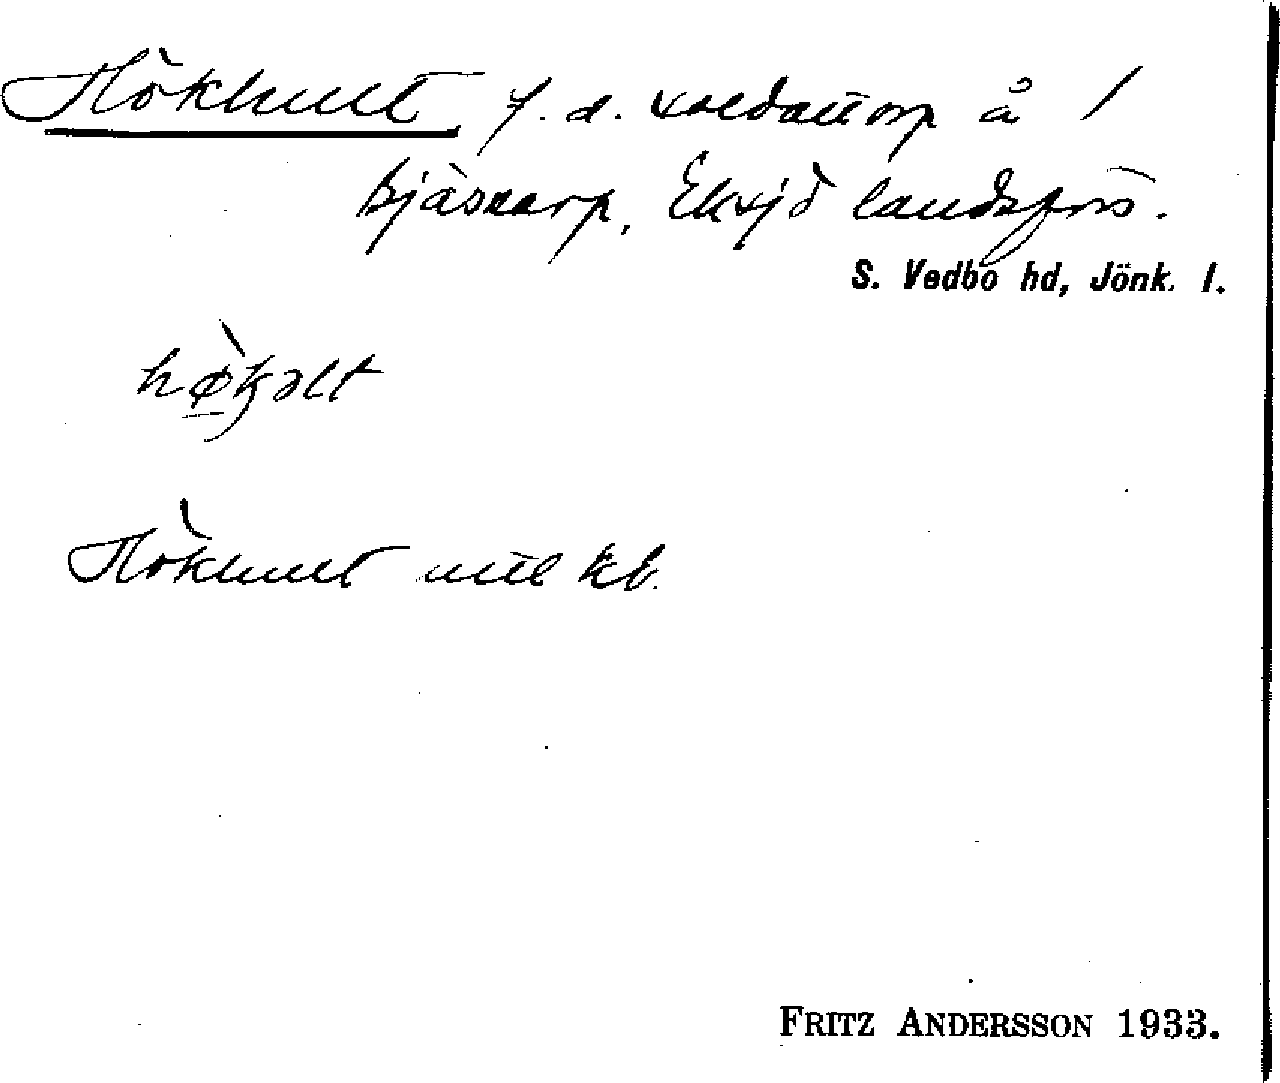 Hökhult f. d. soldattorp å /
Bjäskarp, Eksjö landsförs.
S. Vedbo hd, Jönk. l.
hø̀kəlt
Hökhult utt kb.
FRITZ ANDERSSON 1933.